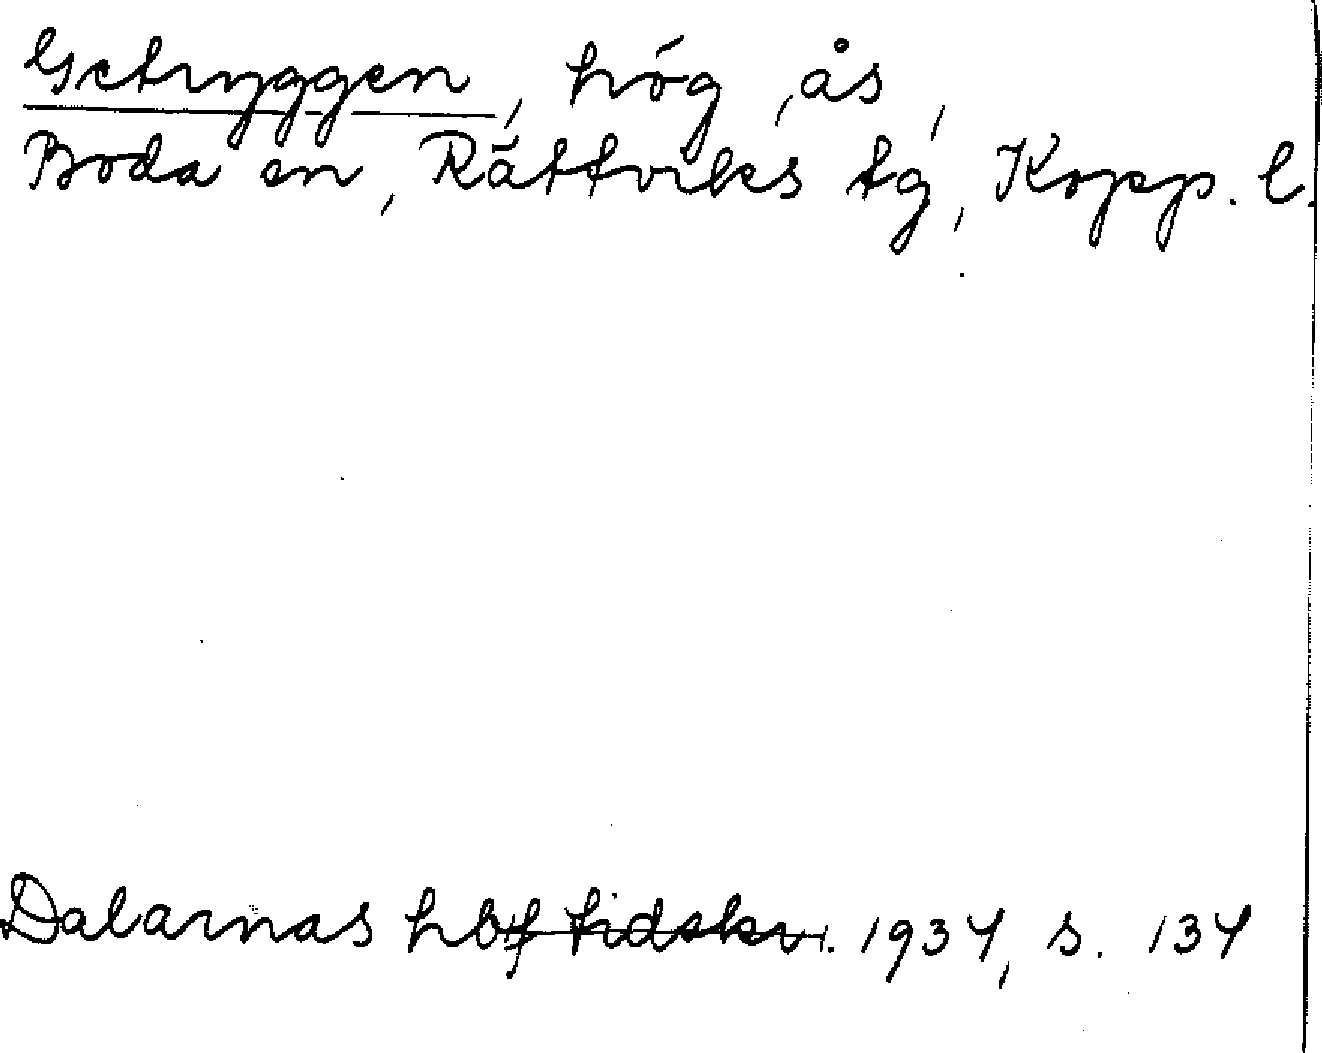 Getryggen, hög ås,
Boda sn, Rättviks tg, Kopp. l.
Dalarnas hbf tidskr. 1934, s. 134